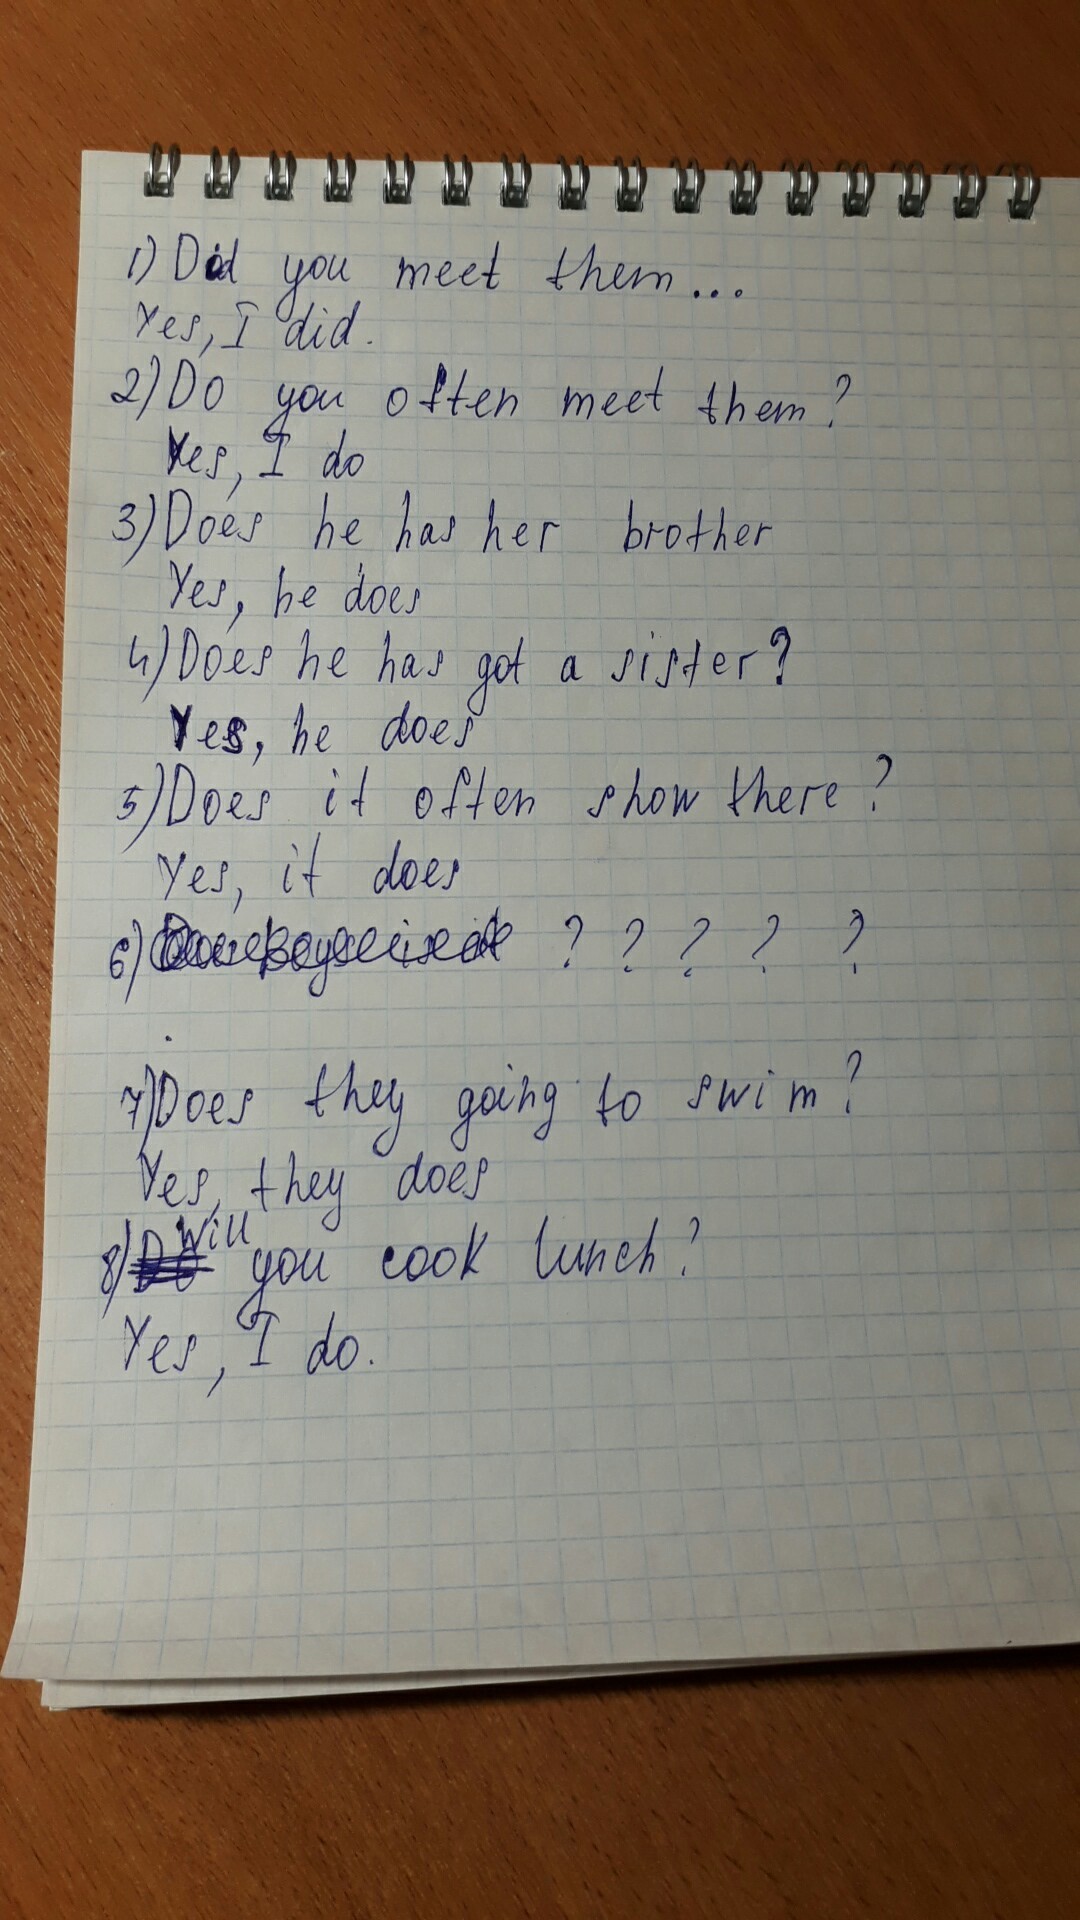 1) Did you meet them...
Yes, I did.
2) Do you often meet them?
Yes, I do
3) Does he has her brother
Yes, he does
4) Does he has got a sister?
Yes, he does
5) Does it often show there?
Yes, it does
6) ? ? ? ? ?
7) Does they going to swim?
Yes, they does
8) Will you cook lunch?
Yes, I do.